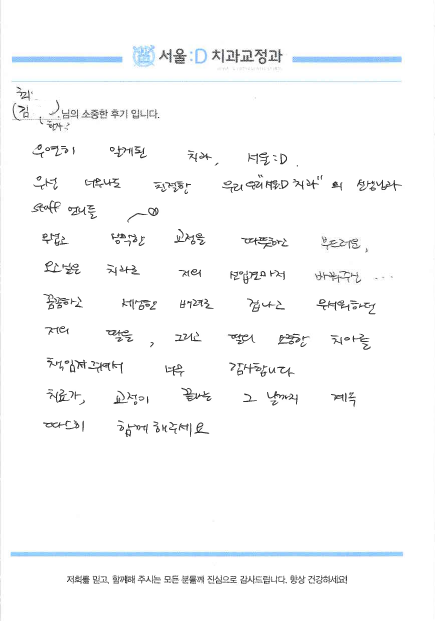 서울:D 치과교정과
최
(김 ), 님의 소중한 후기 입니다.
우연히 알게된 치과, 서울:D.
우선 너무나도 친절한 우리 "서울:D 치과"의 선생님과
staff 언니들
무섭고 딱딱한 교정을 따뜻하고 부드러운,
치과로 저의 선입견마저 바꿔주신 ...
꼼꼼하고 세심한 배려로 겁나고 무서워하던
저의 딸을, 그리고 딸의 소중한 치아를
책임져주셔서 너무 감사합니다
치료가, 교정이 끝나는 그 날까지 계속
따스히 함께 해주세요
저희를 믿고, 함께해 주시는 모든 분들께 진심으로 감사드립니다. 항상 건강하세요!